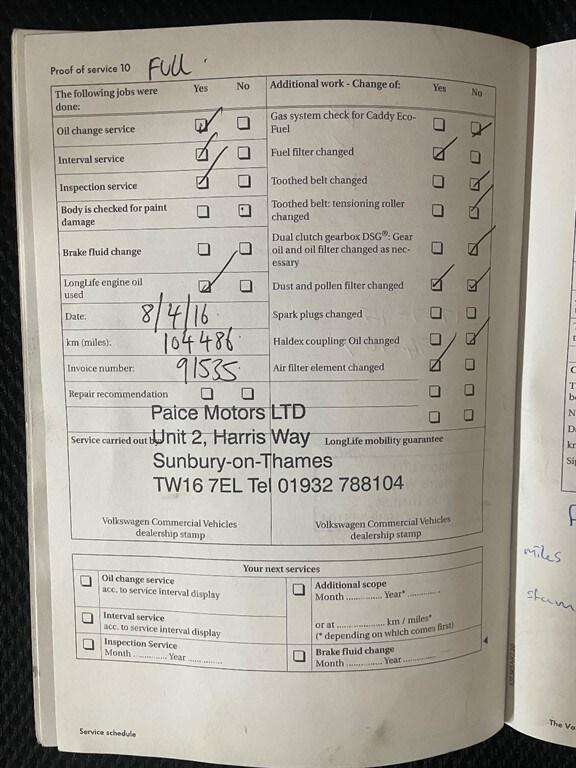 Proof of service 10 FULL
The following jobs were done: Yes No
Oil change service
Interval service
Inspection service
Body is checked for paint damage
Brake fluid change
LongLife engine oil used
Date: 8/4/16
km (miles): 104486
Invoice number: 91535
Repair recommendation
Additional work - Change of: Yes No
Gas system check for Caddy Eco-
Fuel
Fuel filter changed
Toothed belt changed
Toothed belt: tensioning roller
changed
Dual clutch gearbox DSG®: Gear
oil and oil filter changed as nec-
essary
Dust and pollen filter changed
Spark plugs changed
Haldex coupling: Oil changed
Air filter element changed
Service carried out by
LongLife mobility guarantee
Paice Motors LTD
Unit 2, Harris Way
Sunbury-on-Thames
TW16 7EL Tel 01932 788104
Volkswagen Commercial Vehicles
dealership stamp
Volkswagen Commercial Vehicles
dealership stamp
Your next services
Oil change service
acc. to service interval display
Interval service
acc. to service interval display
Inspection Service
Month .............. Year ..............
Additional scope
Month .............. Year* ..............
or at .................... km / miles*
(* depending on which comes first)
Brake fluid change
Month .............. Year ..............
Service schedule
miles
The Vo